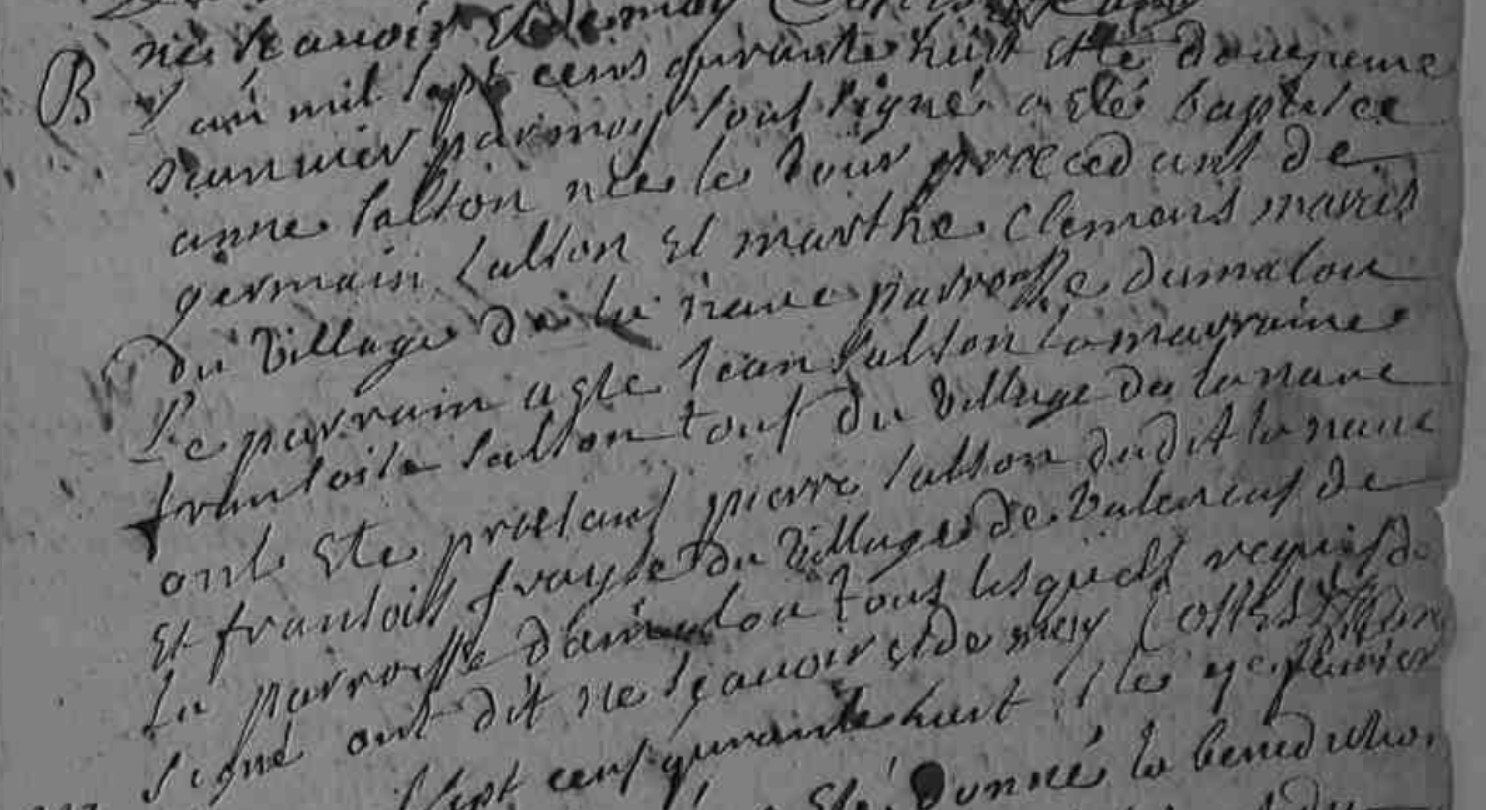 ne scavoir et de moy
B L'an mil sept cens quarante huit et le douzieme
Janvier par moy sous signé a esté baptisee
anne salson née le jour precedant de
germain salson et marthe Clemens mariés
du village de la nave parroisse
Le parrain a esté Jean salson la marraine
francoise salson tous du village de la nave
onts esté presans pierre salson dudit la nave
Et francois du village de de
La parroisse tous lesquels requis de
signé ont dit ne sçavoir et de moy
sept cens quarante huit et le 9e fevrier
esté donnée la benediction